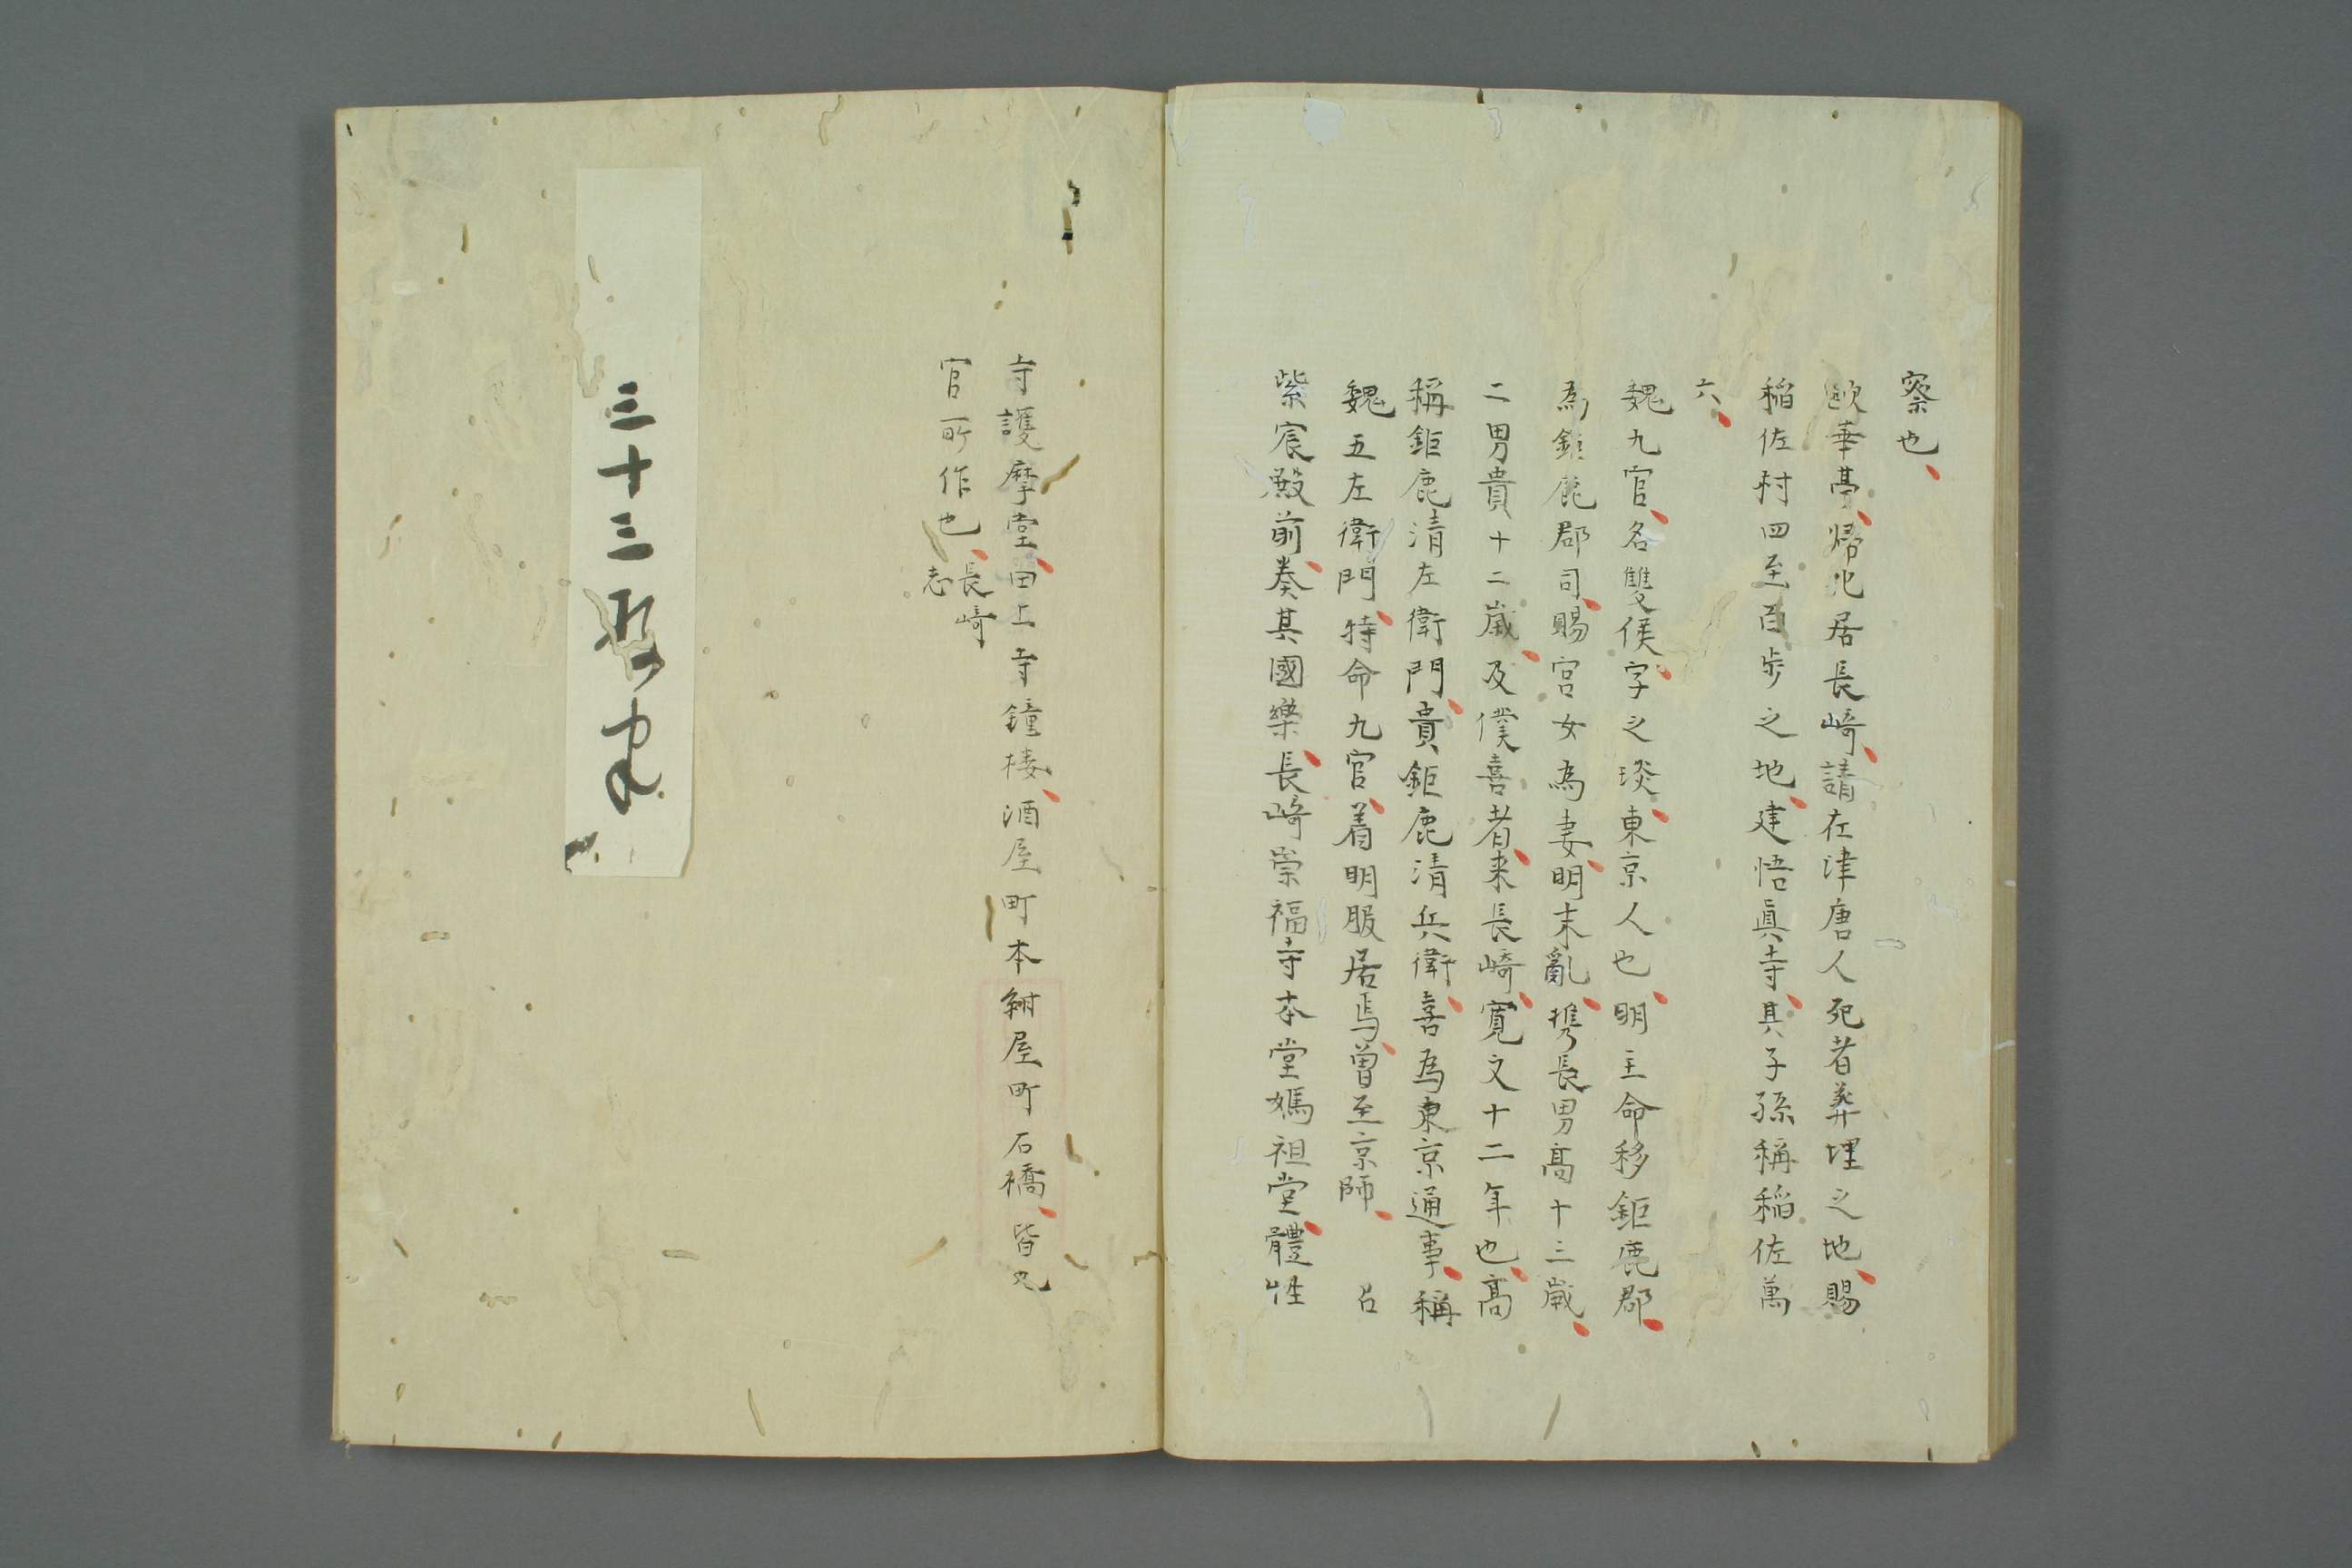 察也
歐華䑓帰化居長崎請在津唐人死者葬埋之地賜
稲佐村四至百歩之地建悟眞寺其子孫稱稲佐萬
六
魏九官名雙侯字之琰東京人也明主命移鉅鹿郡
為鉅鹿郡司賜宮女為妻明末亂携長男髙十三歳
二男貴十二歳及僕喜者来長崎寛文十二年也髙
稱鉅鹿清左衛門貴鉅鹿清兵衛喜為東京通事稱
魏五左衛門特命九官着明服居焉曽至京師 召
紫宸殿前奏其國樂長崎崇福寺本堂媽祖堂體性
寺護摩堂田上寺鐘楼酒屋町本紺屋町石橋皆九
官所作也長崎
志
三十三